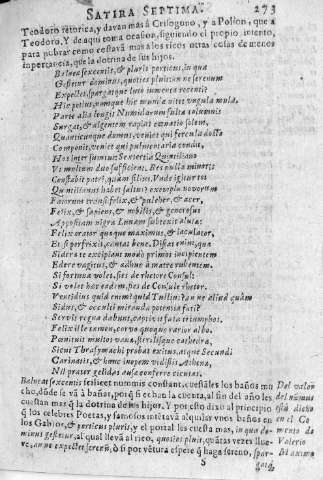 SATIRA SEPTIMA. 273
Teodoro retorica, y davan mas â Crisogono, y a Polion, que a
Teodoro. Y de aqui toma ocasion, siguiendo el propio intento,
para provar como costava mas a los ricos otras cosas de menos
importancia, que la dotrina de sus hijos.
Balnea sexcentis, & pluris porticus, in qua
Gestetur dominus, quoties pluit: an ne serenum
Expectet, spargatque luto iumenta recenti?
Hic potius, namque hic mundæ nitet ungula mulæ.
Parte alia longis Numidarum fulta columnis
Surgat, & algentem rapiat cœnatio solem.
Quanticunque domus, veniet qui fercula docte
Componit, veniet qui pulmentaria condit,
Hos inter sumtus sextertia Quintiliano
Vt multum duo sufficient. Res nulla minoris
Constabit patri, quàm filius. Vnde igitur tot
Quintilianus habet saltus? exempla novorum
Fatorum transi: felix, & pulcher, & acer,
Felix, & sapiens, & nobilis, & generosus
Appositam nigræ Lunam subtexit alutæ:
Felix orator quoque maximus, & iaculator,
Et si perfrixit, cantat bene. Distat enim, quæ
Sidera te excipiant modo primos incipientem
Edere vagitus, & adhuc à matre rubentem.
Si fortuna volet, fies de rhetore Consul:
Si volet hæc eadem, fies de Consule rhetor.
Ventidius quid enim? quid Tullius? an ne aliud quàm
Sidus, & occulti miranda potentia fati?
Servis regna dabunt, captivis fata triumphos.
Felix ille tamen, corvo quoque rarior albo.
Pœnituit multos vanæ, sterilisque cathedræ,
Sicut Thrasymachi probat exitus, atque Secundi
Carinatis, & hunc inopem vidistis Athenæ,
Nil præter gelidas ausæ conferre cicutas.
Balneas sexcentis scilicet nummis constant, cuestales los baños mu
cho, dõde se vã à bañar, porq̃ si echan la cuenta, al fin del año les
cuestan mas q̃ la dotrina de sus hijos. Y por esto dixo al principio
q̃ los celebres Poetas, y famosos intētava alquilar vnos baños en
los Gabios, & porticus pluris, y el portal les cuesta mas, in qua do-
minus gestetur, al qual lleva al rico, quoties pluit, quãtas vezes llue-
ve, an ne expectet serenũ, ò si por vētura espere q̃ haga sereno, spar-
Del valor
del numus
està dicho
en el Co
mento de
Valerio
Maximo
S
gatq̃